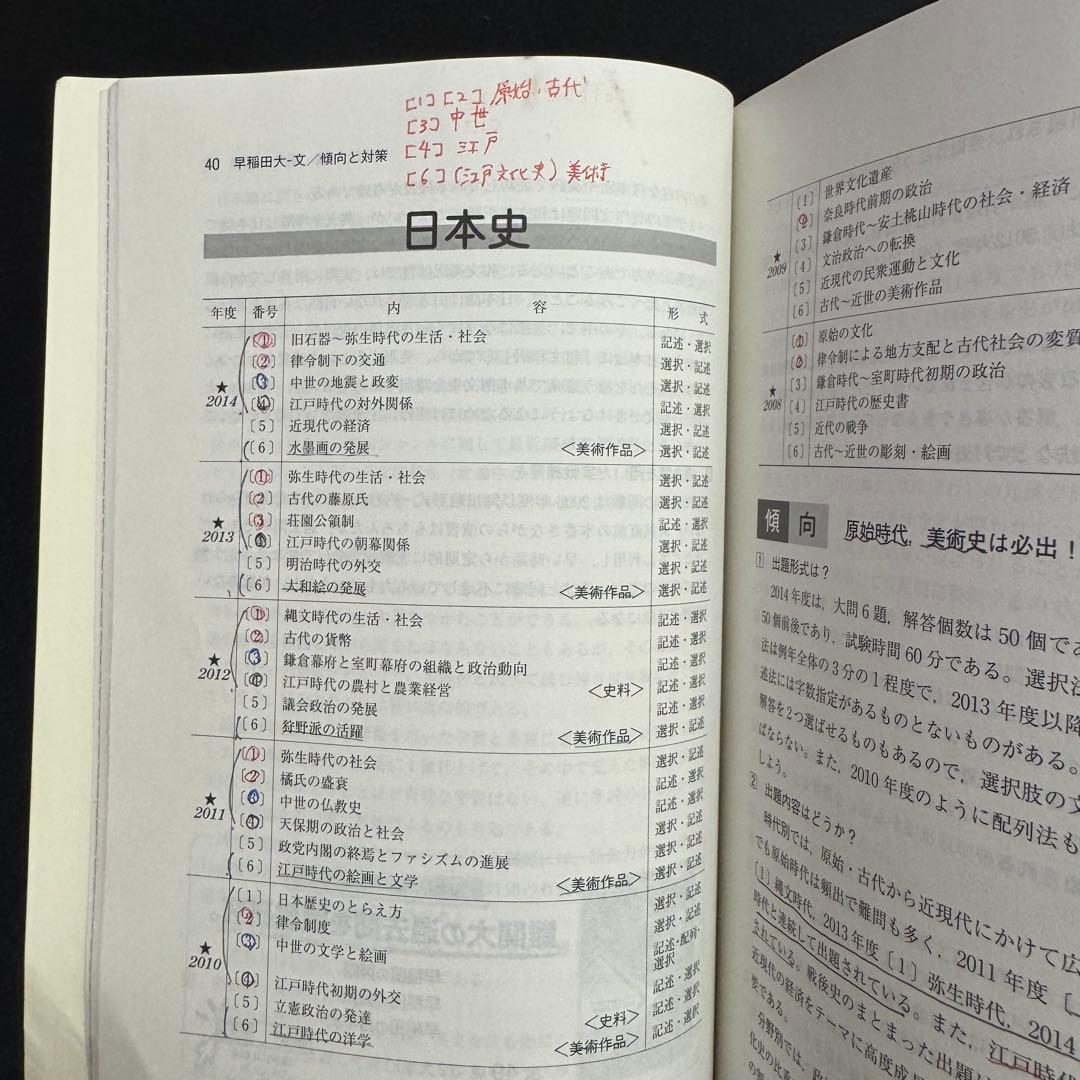 [1][2] 原始・古代
[3] 中世
[4] 江戸
[6] (江戸文化史) 美術
40 早稲田大-文／傾向と対策
日本史
年度 番号 内容 形式
★2014 〔1〕 旧石器～弥生時代の生活・社会 記述・選択
〔2〕 律令制下の交通 選択・記述
〔3〕 中世の地震と政変 選択・記述
〔4〕 江戸時代の対外関係 記述・選択
〔5〕 近現代の経済 選択・記述
〔6〕 水墨画の発展 <美術作品> 選択・記述
★2013 〔1〕 弥生時代の生活・社会 選択・記述
〔2〕 古代の藤原氏 選択・記述
〔3〕 荘園公領制 記述・選択
〔4〕 江戸時代の朝幕関係 選択・記述
〔5〕 明治時代の外交 選択・記述
〔6〕 大和絵の発展 <美術作品> 選択・記述
★2012 〔1〕 縄文時代の生活・社会 選択・記述
〔2〕 古代の貨幣 選択・記述
〔3〕 鎌倉幕府と室町幕府の組織と政治動向 記述・選択
〔4〕 江戸時代の農村と農業経営 <史料> 記述・選択
〔5〕 議会政治の発展 記述・選択
〔6〕 狩野派の活躍 <美術作品> 選択・記述
★2011 〔1〕 弥生時代の社会 選択・記述
〔2〕 橘氏の盛衰 選択・記述
〔3〕 中世の仏教史 記述・選択
〔4〕 天保期の政治と社会 選択・記述
〔5〕 政党内閣の終焉とファシズムの進展 選択・記述
〔6〕 江戸時代の絵画と文学 <美術作品> 選択・記述
★2010 〔1〕 日本歴史のとらえ方 選択・記述
〔2〕 律令制度 選択・記述
〔3〕 中世の文学と絵画 記述・配列・選択
〔4〕 江戸時代初期の外交 記述・選択
〔5〕 立憲政治の発達 <史料> 記述・選択
〔6〕 江戸時代の洋学 <美術作品> 記述・選択
★2009 〔1〕 世界文化遺産
〔2〕 奈良時代前期の政治
〔3〕 鎌倉時代～安土桃山時代の社会・経済
〔4〕 文治政治への転換
〔5〕 近現代の民衆運動と文化
〔6〕 古代～近世の美術作品
★2008 〔1〕 原始の文化
〔2〕 律令制による地方支配と古代社会の変質
〔3〕 鎌倉時代～室町時代初期の政治
〔4〕 江戸時代の歴史書
〔5〕 近代の戦争
〔6〕 古代～近世の彫刻・絵画
傾向 原始時代，美術史は必出！
1 出題形式は？
2014年度は，大問6題，解答個数は50個であ
50個前後であり，試験時間60分である。選択法
法は例年全体の3分の1程度で，2013年度以降
述法には字数指定があるものとないものがある。
解答を2つ選ばせるものもあるので，選択肢の文
ばならない。また，2010年度のように配列法も
しよう。
2 出題内容はどうか？
時代別では，原始・古代から近現代にかけて広
でも原始時代は頻出で難問も多く，2011年度〔
〔1〕縄文時代，2013年度〔1〕弥生時代，2014
時代と連続して出題されている。また，江戸時代
されている。戦後史のまとまった出題は
近現代の経済をテーマに高度成長
要である。
分野別では，政
化史の比重